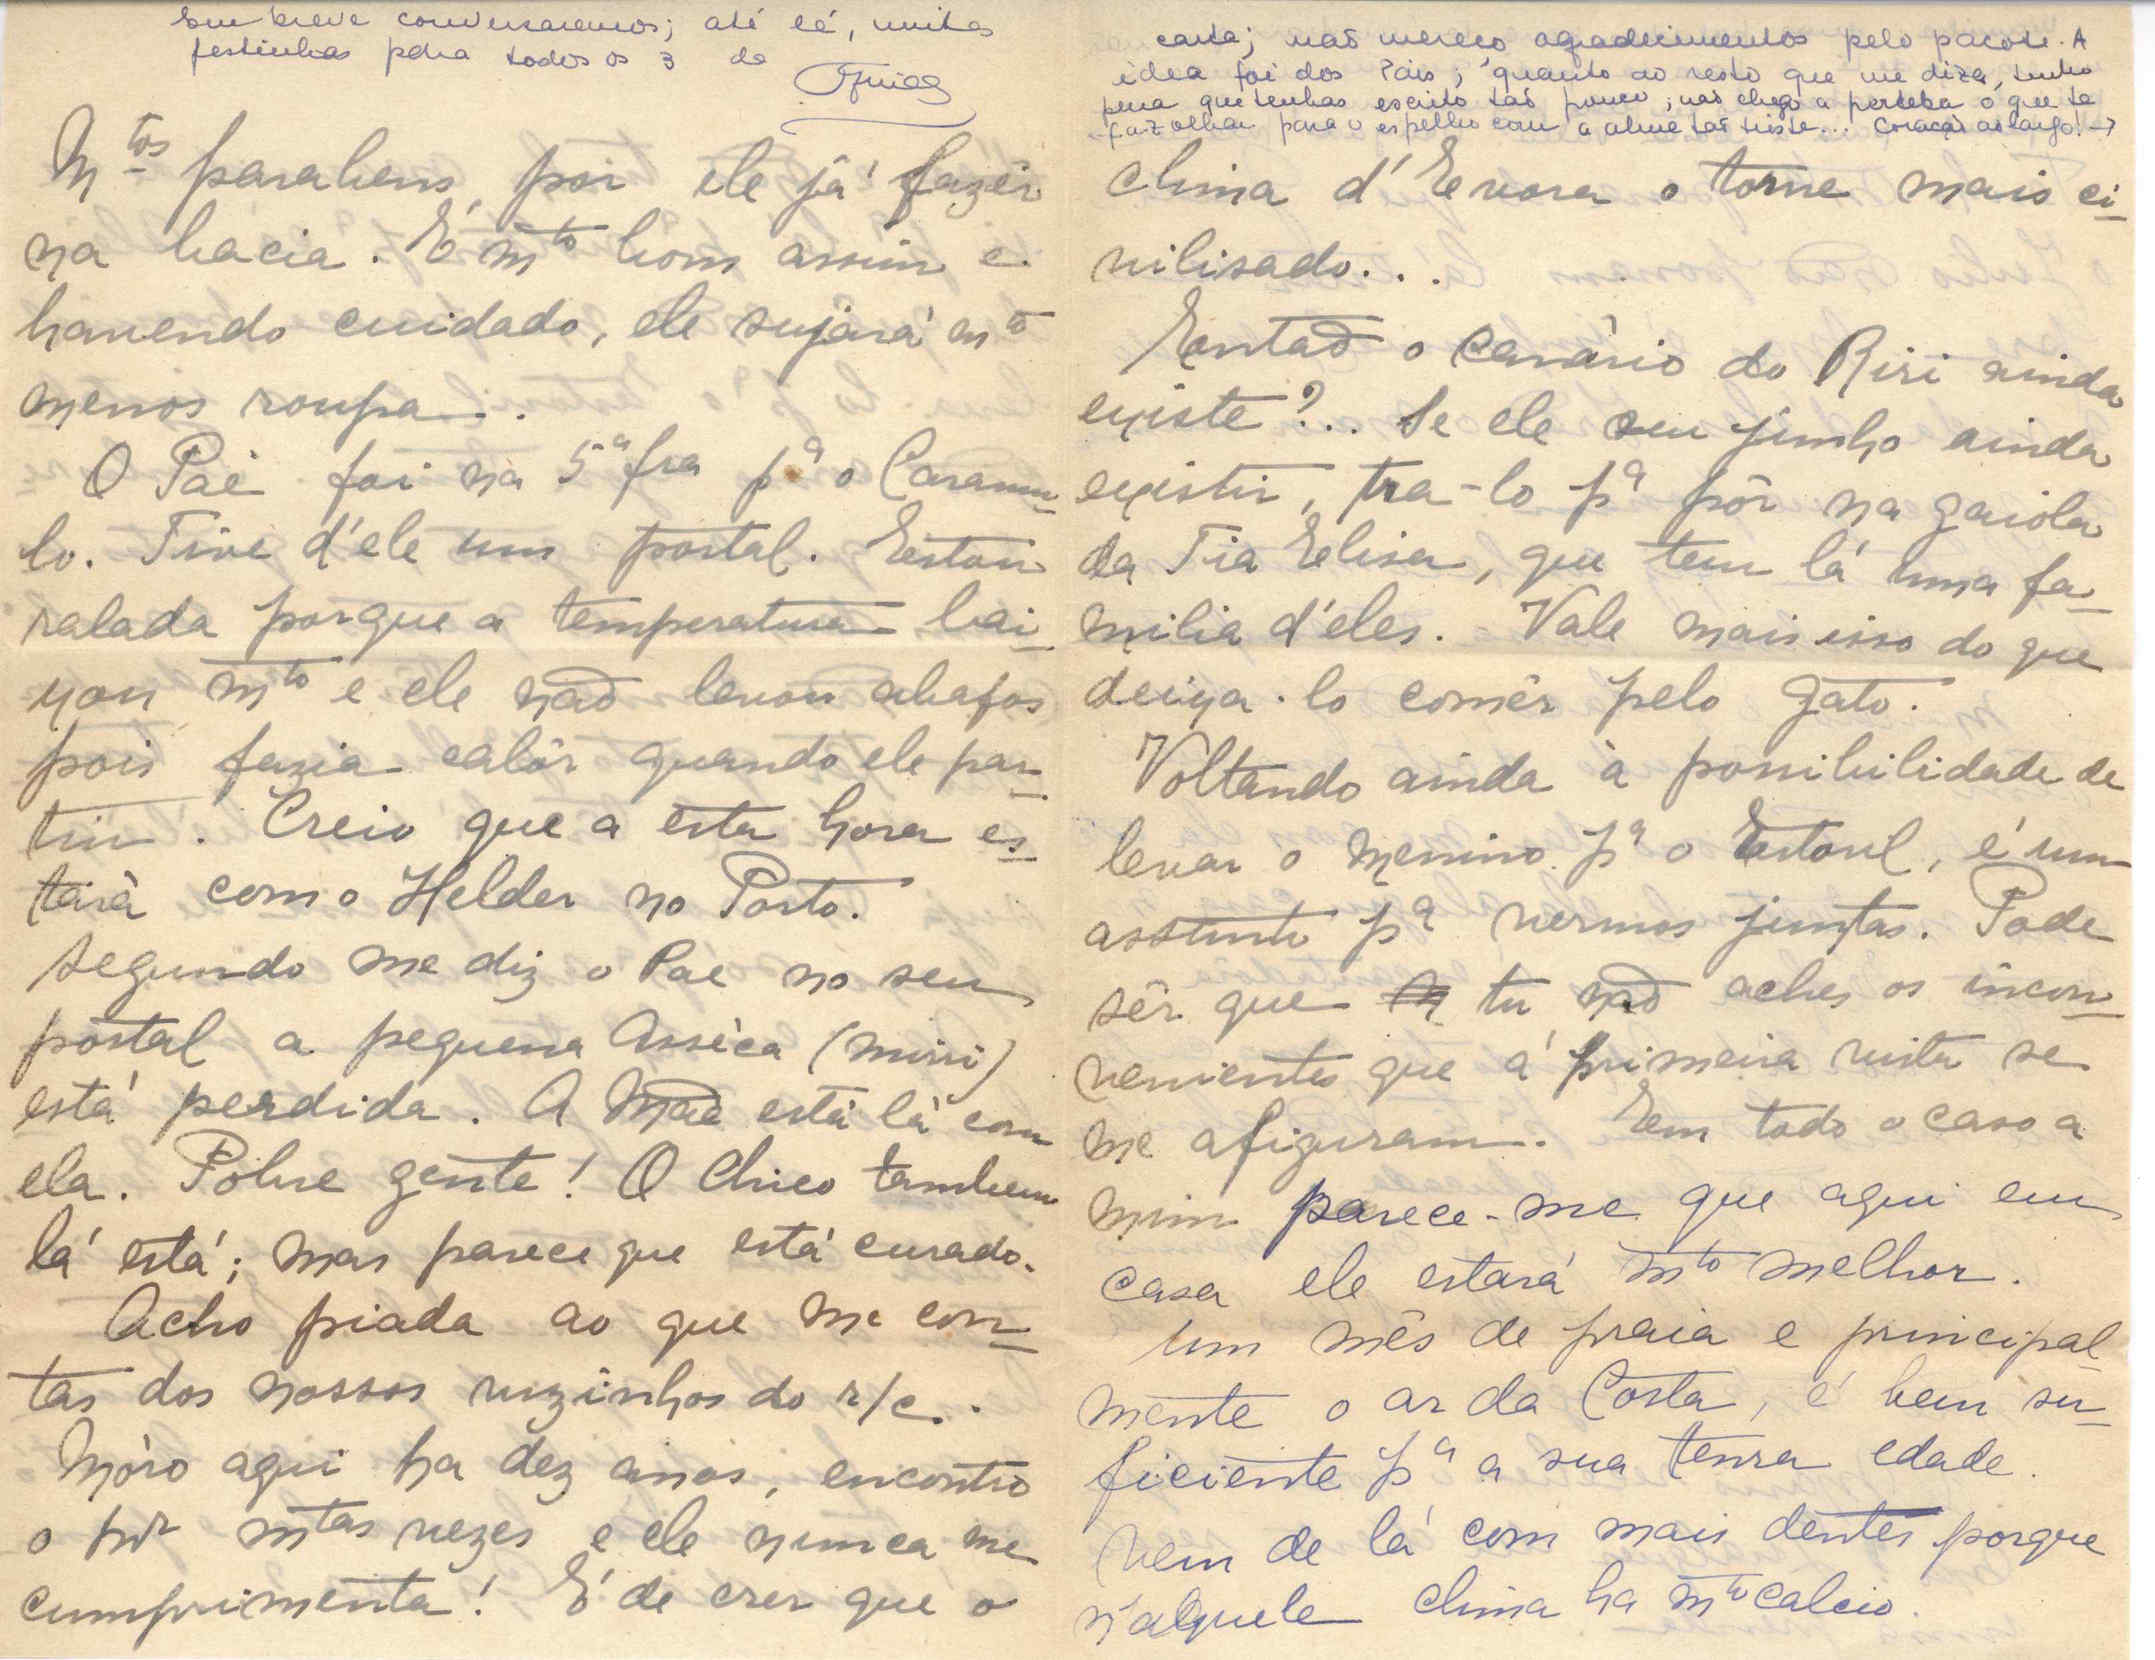 carta; não mereço agradecimentos pelo pacote. A
idea foi dos Pais; quanto ao resto que me dizes, tenho
pena que tenhas escrito tão pouco; não chego a perceber o que te
faz olhar para o espelho com a alma tão triste... Coração ao largo! →
em breve conversaremos; até lá, muitas
festinhas para todos os 3 da
Mtos parabens, por ele já fazêr
na bacia. É mto bom assim e
havendo cuidado, ele sujará mto
menos roupa.
O Pae foi na 5ª fra pª o Caramu-
lo. Tive d'ele um postal. Estou
ralada porque a temperatura bai-
xou mto e ele não levou abafos
pois fazia calôr quando ele par-
tiu. Creio que a esta hora es-
tará com o Helder no Porto.
Segundo me diz o Pae no seu
postal a pequena Asséca (mimi)
está perdida. A Mãe está lá com
ela. Pobre gente! O Chico tambem
lá está; mas parece que está curado.
Acho piada ao que me con-
tas dos nossos vizinhos do r/c..
Móro aqui ha dez anos, encontro
o snr mtas vezes e ele nunca me
cumprimenta! É de crer que o
clima d'Evora o torne mais ci-
vilisado...
Então o canário do Riri ainda
existe?... Se ele em junho ainda
existir, tra-lo pª pôr na gaiola
da Tia Elisa, que tem lá uma fa-
milia d'eles. Vale mais isso do que
deixa-lo comêr pelo gato.
Voltando ainda à possibilidade de
levar o menino pª o Estoril, é um
assunto pª vermos juntas. Pode
sêr que tu não aches os incon-
venientes que á primeira vista se
me afiguram. Em todo o caso a
mim parece-me que aqui em
casa ele estará mto melhor.
Um mês de praia e principal-
mente o ar da Costa, é bem su-
ficiente pª a sua tenra edade.
Vem de lá com mais dentes porque
n'aquele clima ha mto calcio.